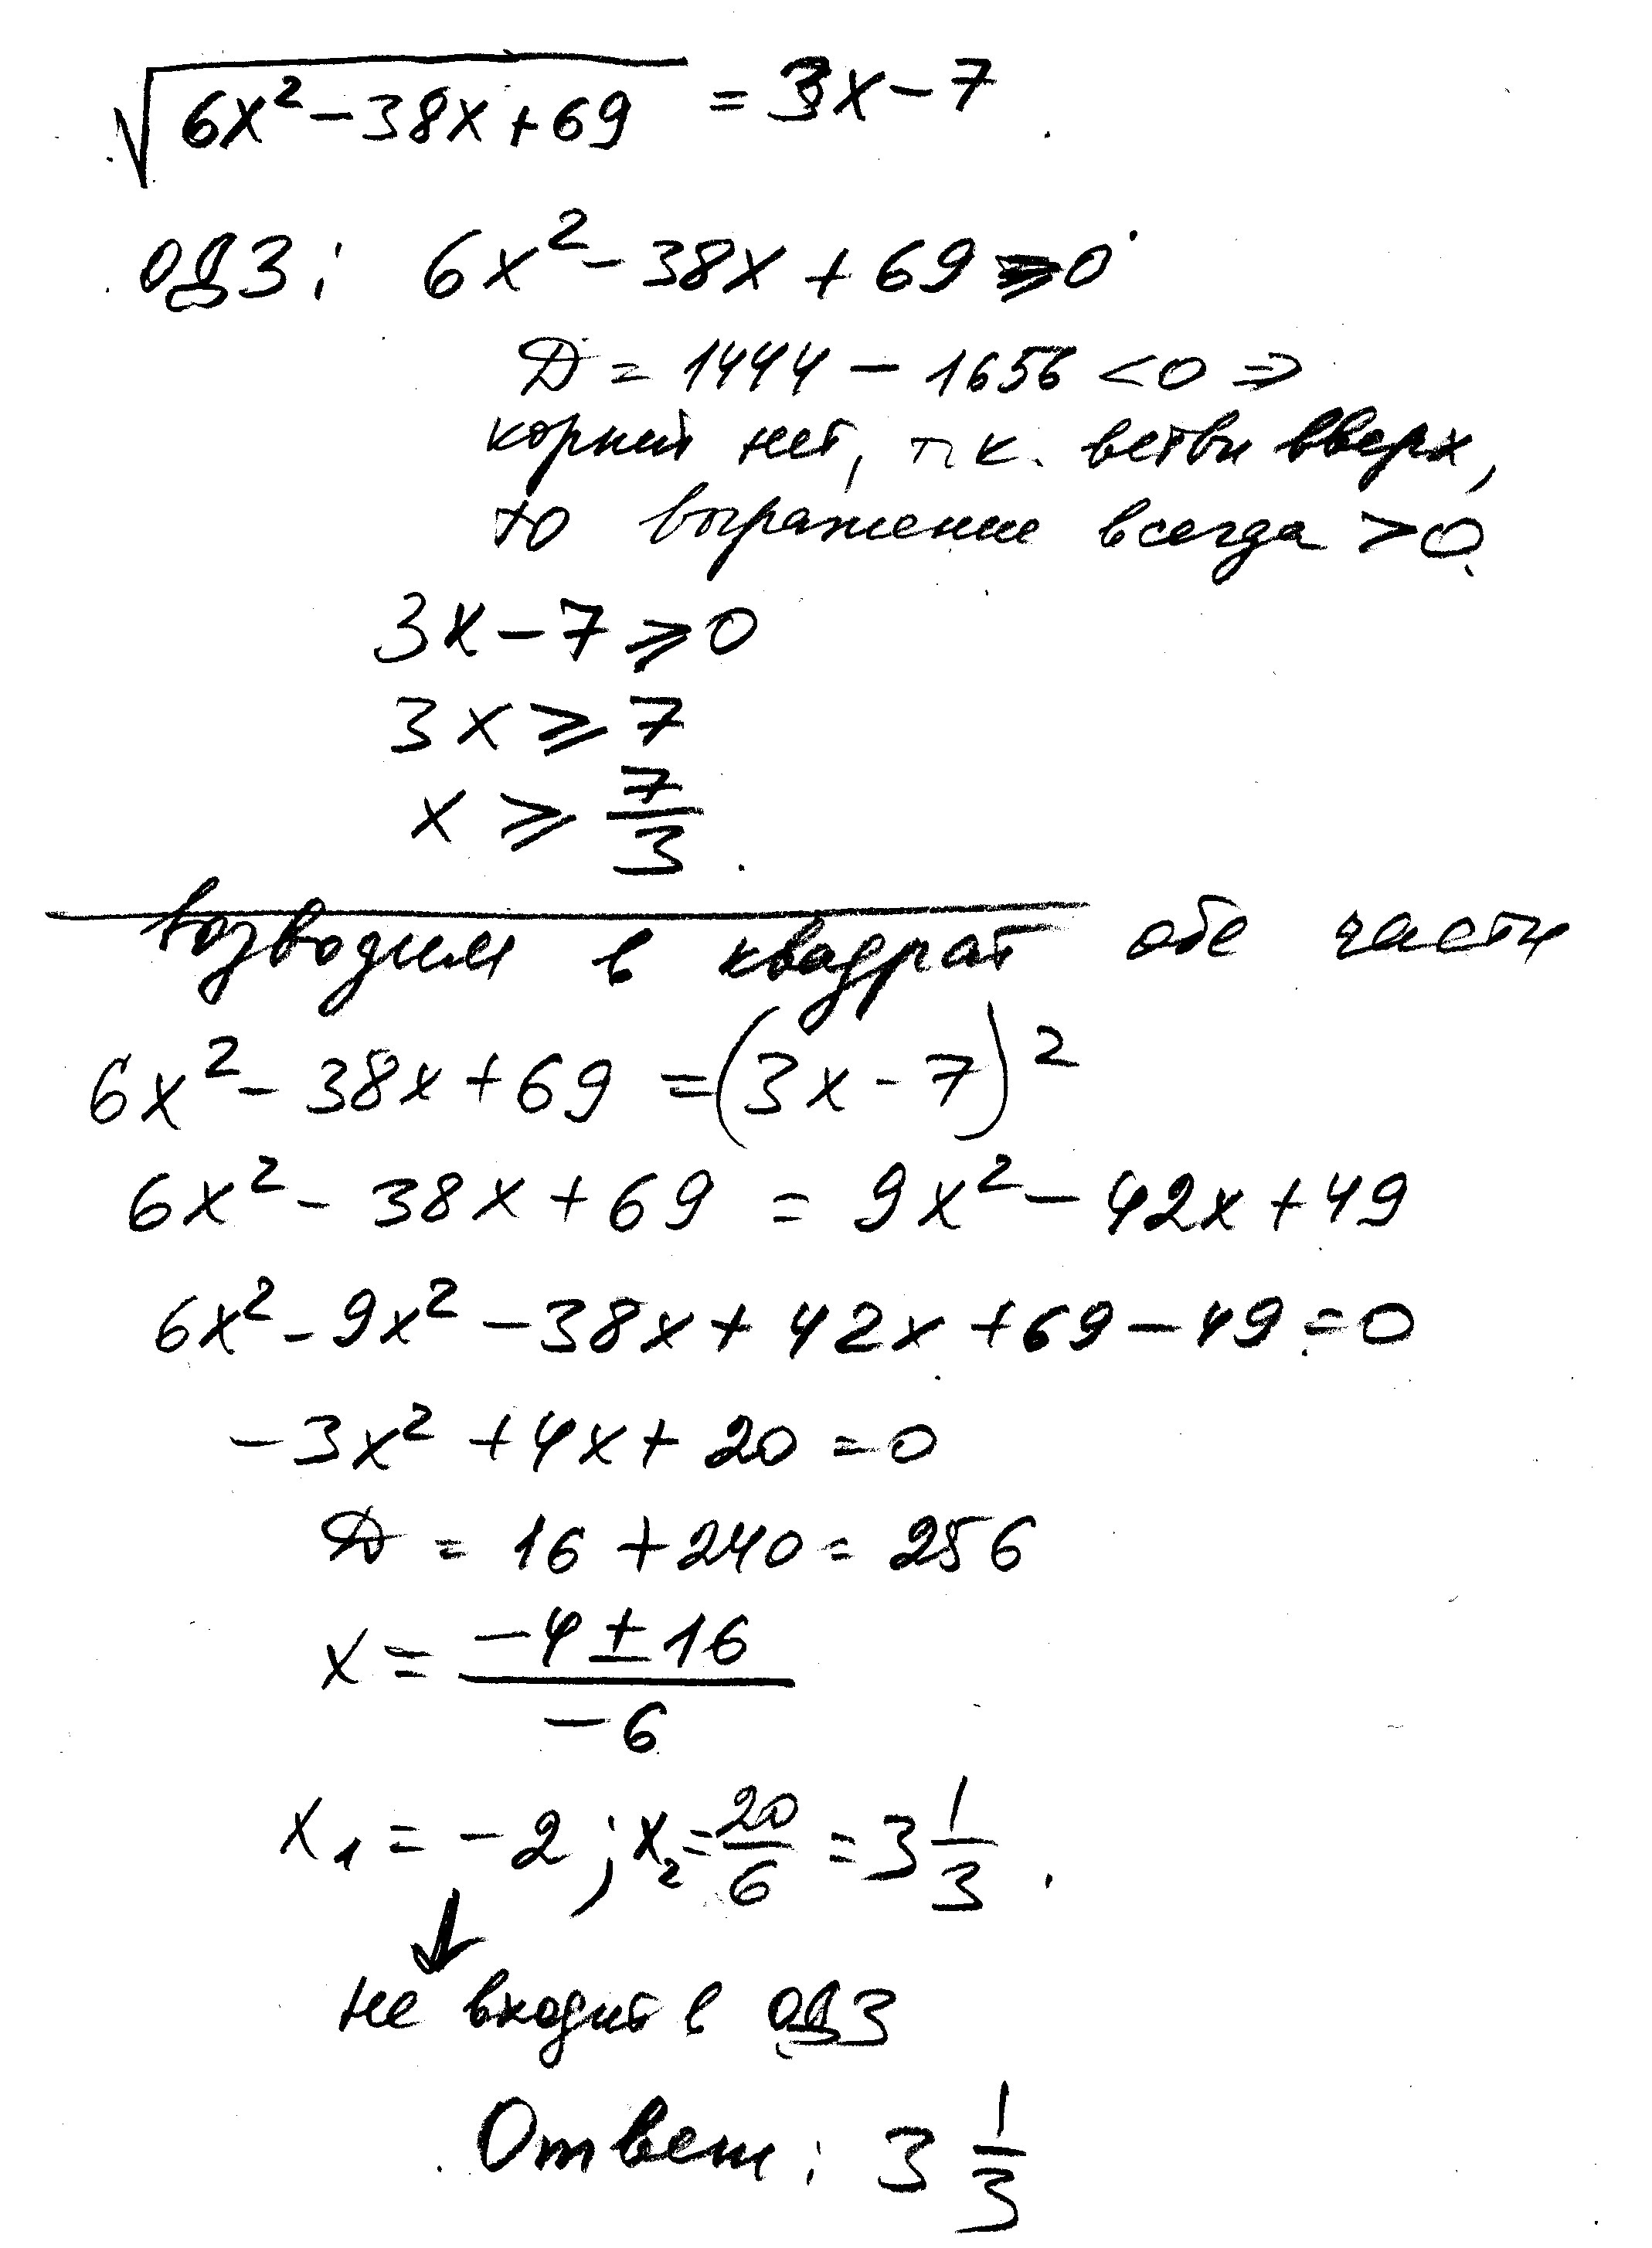 √6x² - 38x + 69 = 3x - 7
ОДЗ: 6x² - 38x + 69 ≥ 0
Д = 1444 - 1656 < 0 ⇒
корней нет, т.к. ветви вверх,
то выражение всегда > 0.
3x - 7 ≥ 0
3x ≥ 7
x ≥ 7/3
возводим в квадрат обе части
6x² - 38x + 69 = (3x - 7)²
6x² - 38x + 69 = 9x² - 42x + 49
6x² - 9x² - 38x + 42x + 69 - 49 = 0
-3x² + 4x + 20 = 0
Д = 16 + 240 = 256
x = (-4 ± 16)/-6
x₁ = -2; x₂ = 20/6 = 3 1/3.
↓
не входит в ОДЗ
Ответ: 3 1/3